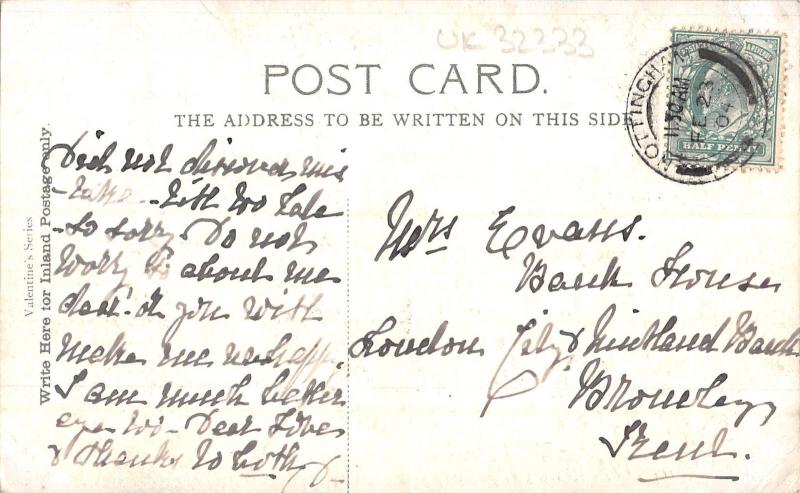 UK 32333
POST CARD.
THE ADDRESS TO BE WRITTEN ON THIS SIDE
NOTTINGHAM
11.30 AM
FE 23
04
HALF PENNY
Valentine's Series
Write Here for Inland Postage only.
Did not discover mis
-take till too late
-so sorry. Do not
worry about me
dear. you with
make me unhappy.
I am much better
Dear Loves
& thanks to both
Mrs Evans.
Bank House
London City & Midland Bank
Bromley
Kent.